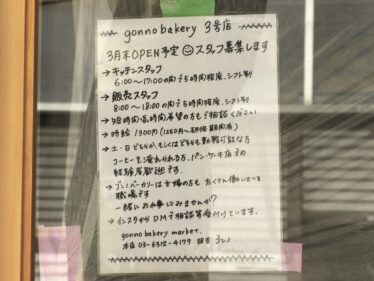 gonno bakery 3号店
3月末OPEN予定 スタッフ募集します
→キッチンスタッフ
6:00〜17:00の間で5時間程度、シフト制
→販売スタッフ
8:00〜18:00の間で5時間程度、シフト制
→短時間・長時間希望の方もご相談ください
→時給 1300円 (1250円〜研修期間有)
→土・日どちらか、もしくはどちらも勤務可能な方
コーヒーを淹れられる方、パン・ケーキ店での
経験者歓迎です。
→ゴンノベーカリーは主婦の方も たくさん働いている
職場です
一緒にお仕事してみませんか?
→インスタからDMで相談等受付けています。
gonno bakery market.
本店 03-6312-4179 担当 ゴンノ